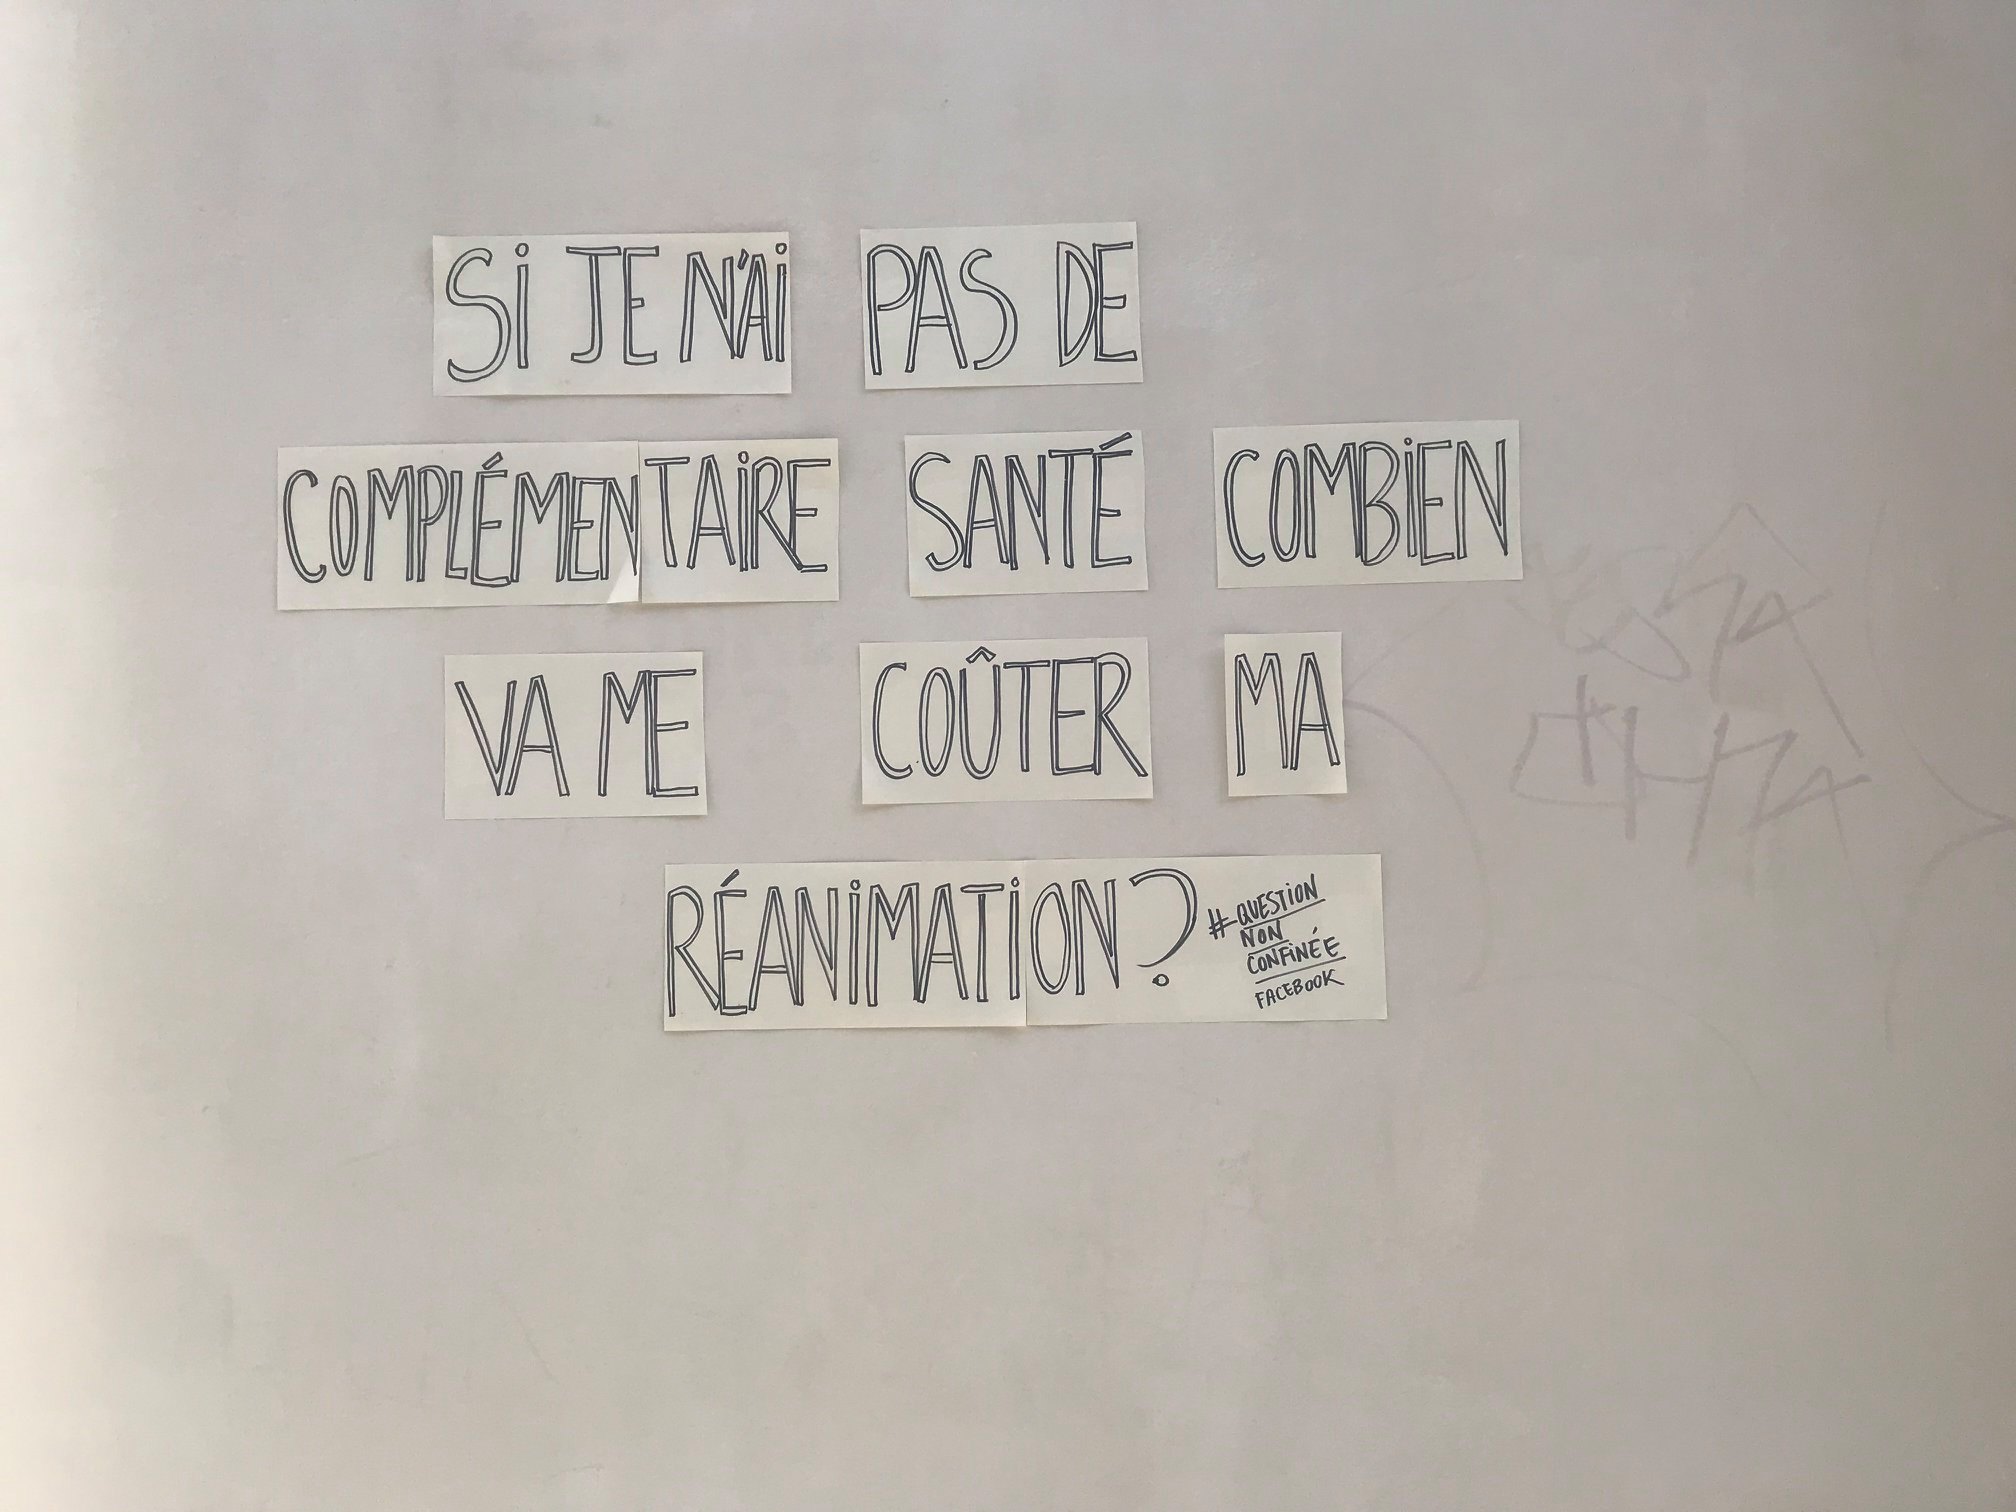 SI JE N'AI PAS DE
COMPLÉMENTAIRE SANTÉ COMBIEN
VA ME COÛTER MA
RÉANIMATION?
#QUESTION
NON
CONFINÉE
FACEBOOK